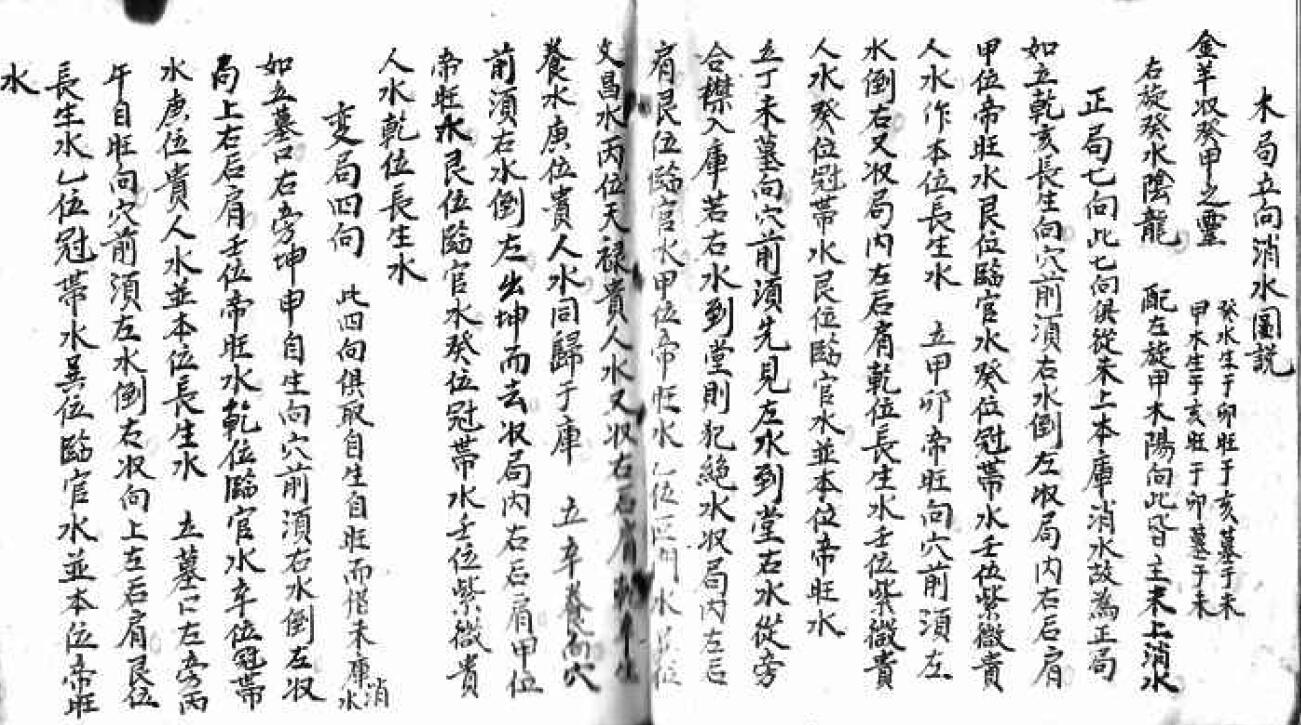 木局立向消水圖説
金羊収癸甲之靈 癸水生于卯旺于亥墓于未
甲木生于亥旺于卯墓于未
右旋癸水陰龍 配左旋甲木陽向此皆主未上消水
正局七向此七向俱從未上本庫消水故為正局
如立乾亥長生向穴前須右水倒左収局内右后肩
甲位帝旺水艮位臨官水癸位冠帯水壬位紫微貴
人水作本位長生水 立甲卯帝旺向穴前須左
水倒右又収局内左后肩乾位長生水壬位紫微貴
人水癸位冠帯水艮位臨官水並本位帝旺水
立丁未墓向穴前須先見左水到堂右水從旁
合襟入庫若右水到堂則犯絶水収局内左后
肩艮位臨官水甲位帝旺水乙位 門水 位
文昌水丙位天禄貴人水又収右后肩 生
養水庚位貴人水同歸于庫 立辛養向穴
前須右水倒左出坤而去収局内右后肩甲位
帝旺水艮位臨官水癸位冠帯水壬位紫微貴
人水乾位長生水
変局四向 此四向俱取自生自旺而借未庫消水
如立墓口右旁坤申自生向穴前須右水倒左収
局上右后肩壬位帝旺水乾位臨官水辛位冠帯
水庚位貴人水並本位長生水 立墓 左旁丙
午自旺向穴前須左水倒右収向上左后肩艮位
長生水乙位冠帯水巽位臨官水並本位帝旺
水